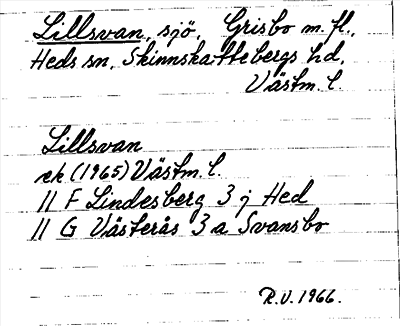 Lillsvan, sjö, Grisbo m.fl.,
Heds sn, Skinnskattebergs hd,
Västm. l.
Lillsvan
ek (1965) Västm. l.
11 F Lindesberg 3 j Hed
11 G Västerås 3 a Svansbo
R.V. 1966.